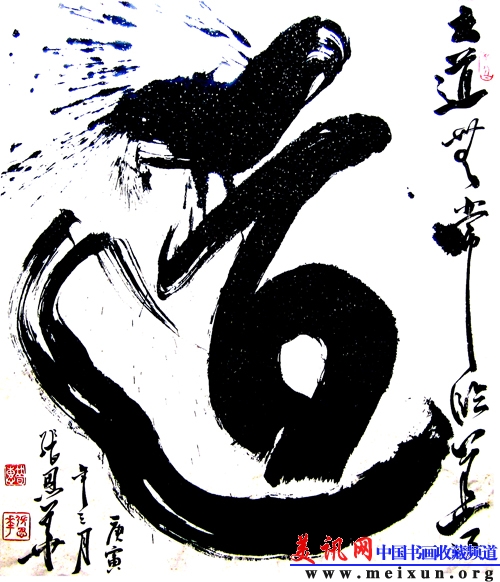 大道無常
道
庚寅
年三月
张恩华
美讯网 中国书画收藏频道
www.meixun.org